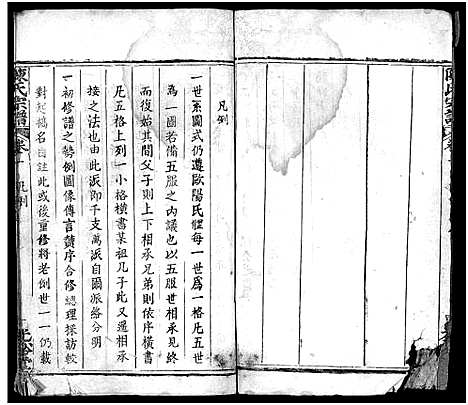 陳氏宗譜
卷一
凡例
一世系圖式仍遵歐陽氏體每一世爲一格凡五世
爲一圖若備五服之內議也以五服世相承見終
而復始其間父子則上下相承兄弟則依序橫書
凡五格上列一小格橫書某祖几子此又遞相承
接之法也由此派即千支萬派自爾派絡分明
一初修譜之勢例圖像傳言贊序合修總理採訪較
對起稿名自註此或後重修將老倒世一一仍載
陳氏宗譜
卷一
凡例